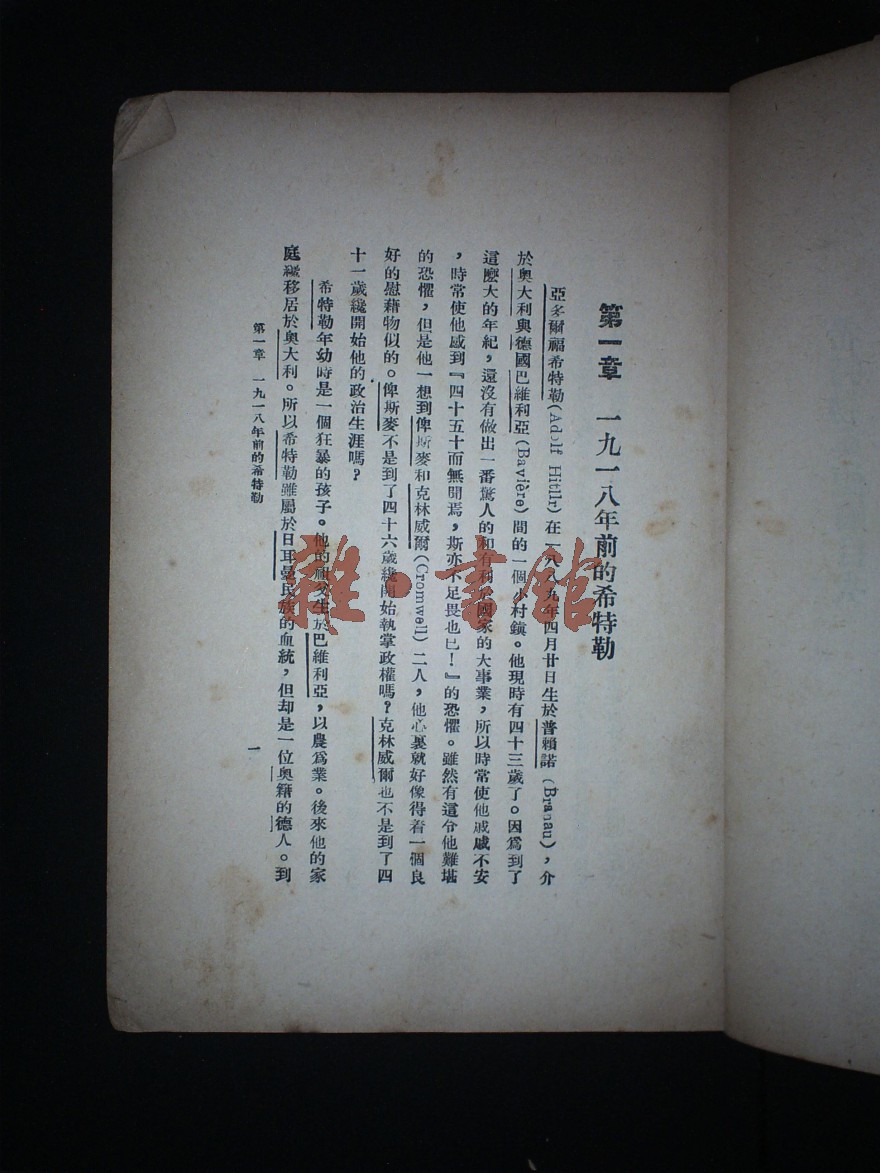 第一章　一九一八年前的希特勒
亞多爾福希特勒(Adolf Hitllr)在一八八九年四月廿日生於普賴諾(Branau)，介
於奧大利與德國巴維利亞(Bavière)間的一個小村鎮。他現時有四十三歲了。因爲到了
這麼大的年紀，還沒有做出一番驚人的和有利於國家的大事業，所以時常使他戚戚不安
，時常使他感到『四十五十而無聞焉，斯亦不足畏也已！』的恐懼。雖然有這令他難堪
的恐懼，但是他一想到俾斯麥和克林威爾(Cromwell)二人，他心裏就好像得着一個良
好的慰藉物似的。俾斯麥不是到了四十六歲纔開始執掌政權嗎？克林威爾也不是到了四
十一歲纔開始他的政治生涯嗎？
希特勒年幼時是一個狂暴的孩子。他的祖父生於巴維利亞，以農爲業。後來他的家
庭纔移居於奧大利。所以希特勒雖屬於日耳曼民族的血統，但却是一位奧籍的德人。到
第一章　一九一八年前的希特勒
一
雜·書館